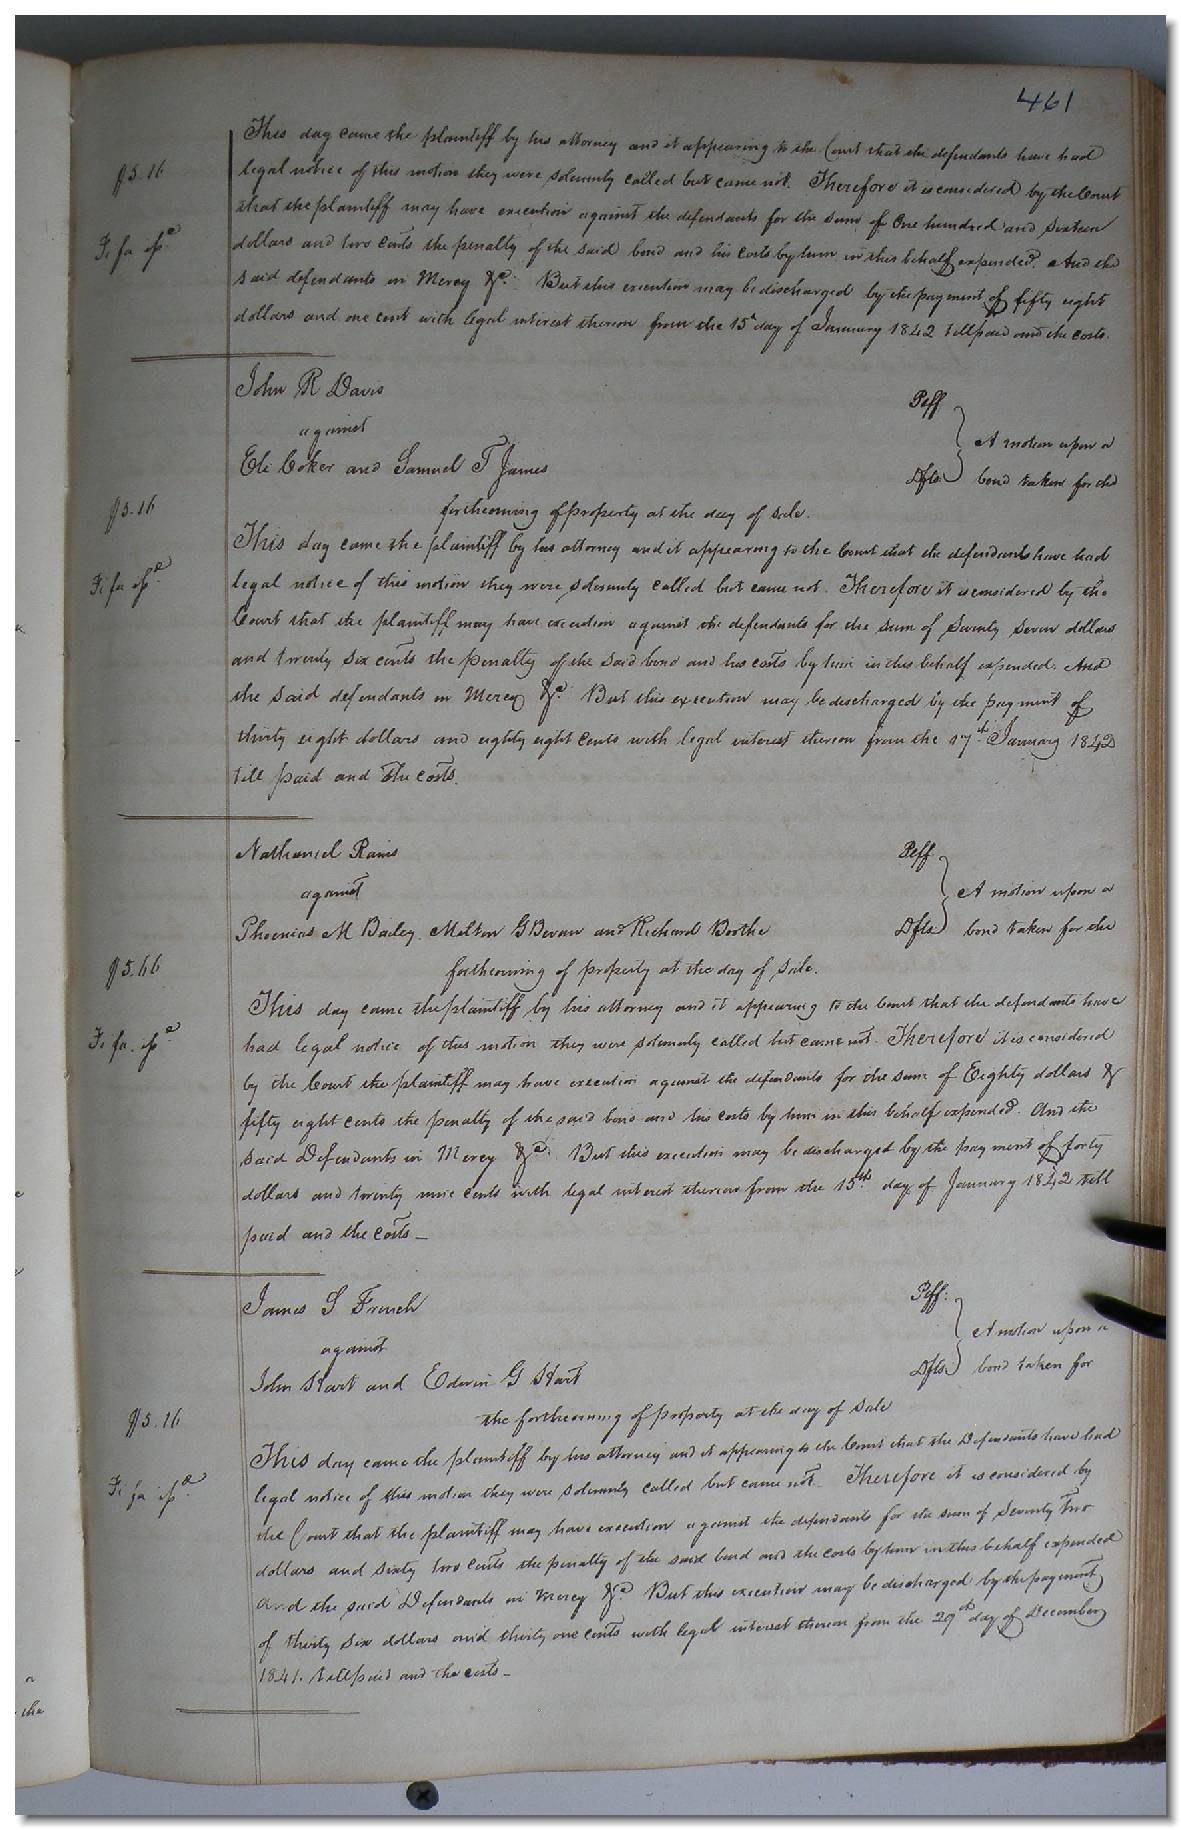 461
This day came the plaintiff by his attorney and it appearing to the Court that the defendants have had
$5.16
legal notice of this motion they were solemnly called but came not. Therefore it is considered by the Court
that the plaintiff may have execution against the defendants for the sum of One hundred and sixteen
Fi fa
dollars and two cents the penalty of the said bond and his costs by him in this behalf expended. And the
said defendants in Mercy &c. But this execution may be discharged by the payment of fifty eight
dollars and one cent with legal interest thereon from the 15 day of January 1842 till paid and the costs.
John R Davis Plff
against
A motion upon a
Eli Coker and Samuel T James Dfts bond taken for the
$5.16
forthcoming of property at the day of sale.
This day came the plaintiff by his attorney and it appearing to the Court that the defendants have had
Fi fa
legal notice of this motion they were solemnly called but came not. Therefore it is considered by the
Court that the plaintiff may have execution against the defendants for the sum of Seventy seven dollars
and twenty six cents the penalty of the said bond and his costs by him in this behalf expended. And
the said defendants in Mercy &c. But this execution may be discharged by the payment of
thirty eight dollars and eighty eight cents with legal interest thereon from the 17th January 1842
till paid and the costs.
Nathaniel Rains Plff
against
A motion upon a
M Bailey, Milton G and Richard Boothe Dfts bond taken for the
$5.66
forthcoming of property at the day of sale.
This day came the plaintiff by his attorney and it appearing to the Court that the defendants have
Fi fa.
had legal notice of this motion they were solemnly called but came not. Therefore it is considered
by the Court the plaintiff may have execution against the defendants for the sum of Eighty dollars &
fifty eight cents the penalty of the said bond and his costs by him in this behalf expended. And the
said Defendants in Mercy &c. But this execution may be discharged by the payment of forty
dollars and twenty nine cents with legal interest thereon from the 15th day of January 1842 till
paid and the costs –
James S French Plff:
against
A motion upon a
John and Edwin G Dfts. bond taken for
$5.16
the forthcoming of property at the day of sale
This day came the plaintiff by his attorney and it appearing to the Court that the Defendants have had
Fi fa
legal notice of this motion they were solemnly called but came not. Therefore it is considered by
the Court that the plaintiff may have execution against the defendants for the sum of Seventy two
dollars and sixty two cents the penalty of the said bond and the costs by him in this behalf expended
And the said Defendants in Mercy &c. But this execution may be discharged by the payment
of thirty six dollars and thirty one cents with legal interest thereon from the 29th day of December
1841. till paid and the costs –